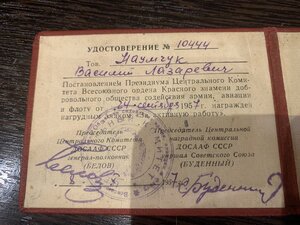 УДОСТОВЕРЕНИЕ № 10444
Тов. Наумчук
Василий Лазаревич
Постановлением Президиума Центрального Коми-
тета Всесоюзного ордена Красного знамени доб-
ровольного общества содействия армии, авиации
и флоту от сентября 1957 г. награжден
нагрудным знаком „За активную работу".
Председатель
Центрального Комитета
ДОСААФ СССР
генерал-полковник
(БЕЛОВ)
Председатель Центральной
наградной комиссии
ДОСААФ СССР
Маршал Советского Союза
(БУДЕННЫЙ)